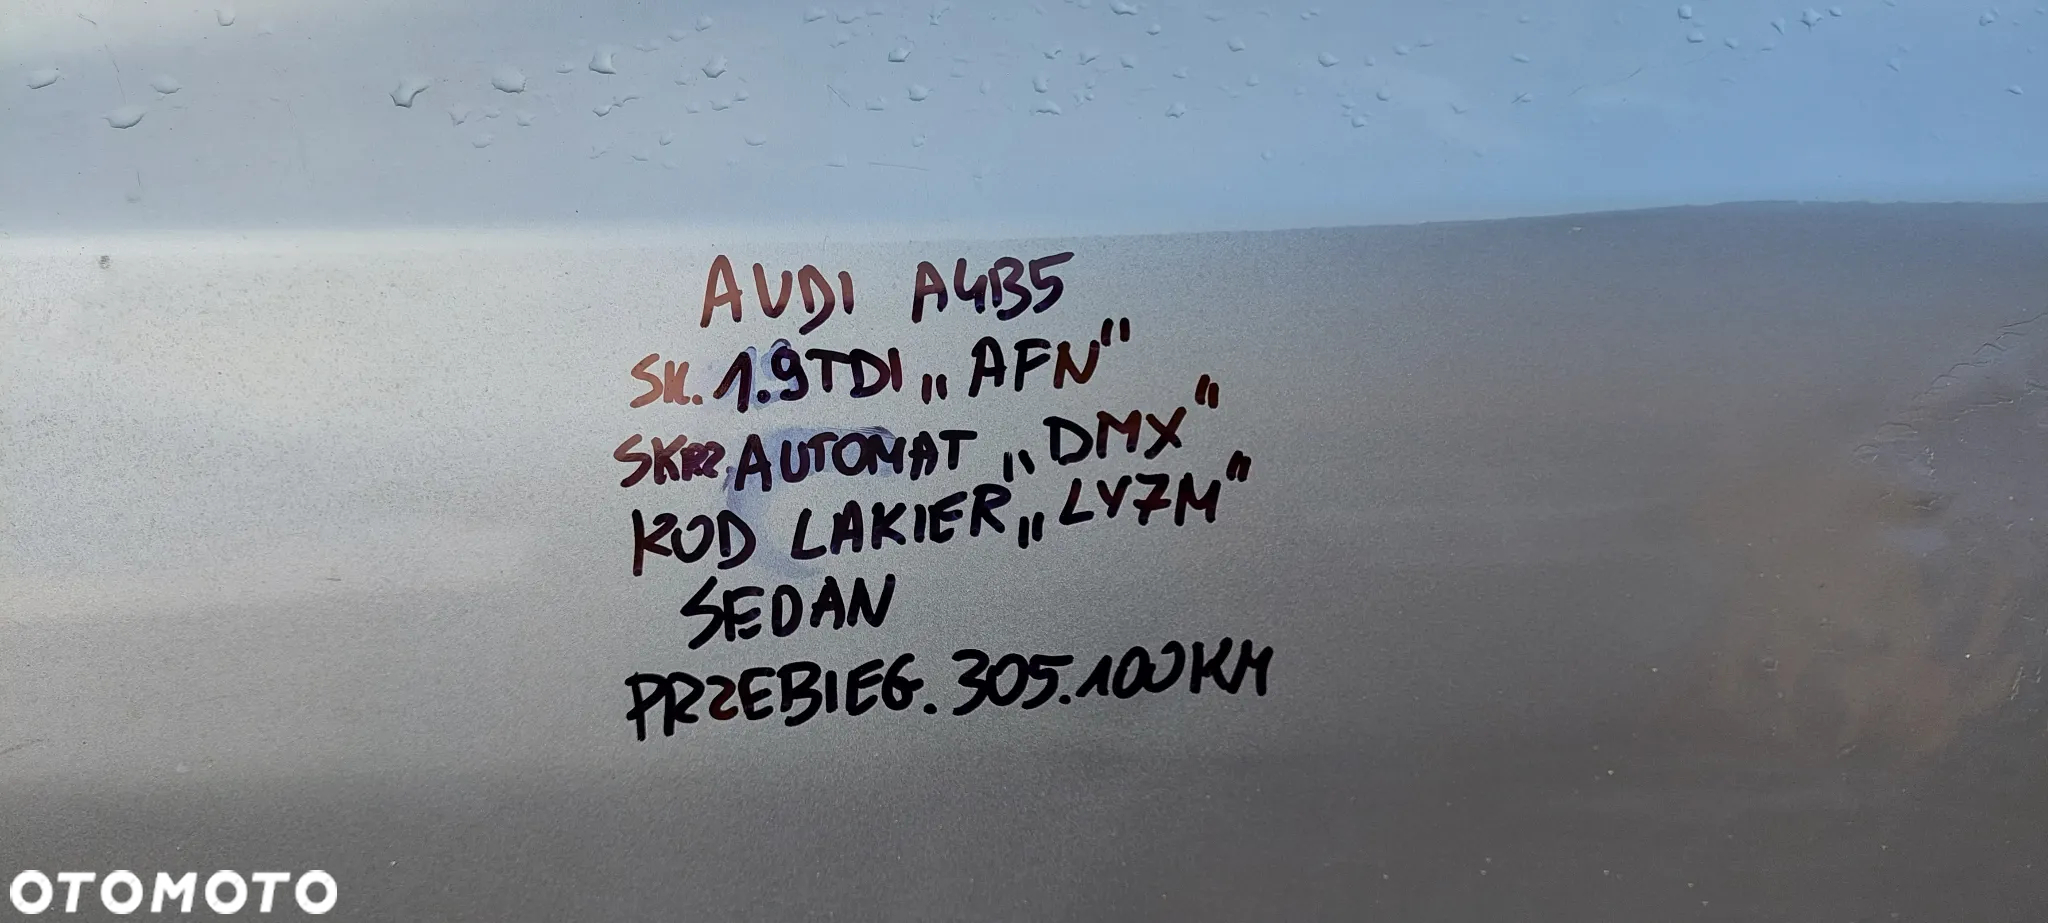 AUDI A4B5
SK. 1.9TDI „AFN"
SKRZ. AUTOMAT „DMX"
KOD LAKIER „LY7M"
SEDAN
PRZEBIEG. 305.100KM
OTOMOTO